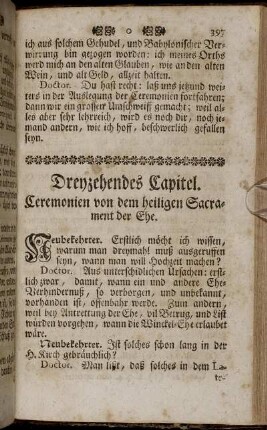 397
ich aus solchem Gehudel, und Babylonischer Ver-
wirrung bin gezogen worden: ich meines Orths
werd mich an den alten Glauben, wie an den alten
Wein, und alt Geld, allzeit halten.
Doctor. Du hast recht: laß uns jetzund wei-
ters in der Auslegung der Ceremonien fortfahren;
dann wir ein grosser Umschweiff gemacht; weil al-
les aber sehr lehrreich, wird es noch dir, noch je-
mand andern, wie ich hoff, beschwerlich gefallen
seyn.
Dreyzehendes Capitel.
Ceremonien von dem heiligen Sacra-
ment der Ehe.
Neubekehrter. Erstlich möcht ich wissen,
warum man dreymahl muß ausgeruffen
seyn, wann man will Hochzeit machen?
Doctor. Aus unterschidlichen Ursachen: erst-
lich zwar, damit, wann ein und andere Ehe-
Verhindernuß, so verborgen, und unbekannt,
vorhanden ist, offenbahr werde. Zum andern,
weil bey Antrettung der Ehe, vil Betrug, und List
würden vorgehen, wann die Winckel-Ehe erlaubet
wäre.
Neubekehrter. Ist solches schon lang in der
H. Kirch gebräuchlich?
Doctor. Man lißt, daß solches in dem La-
te-